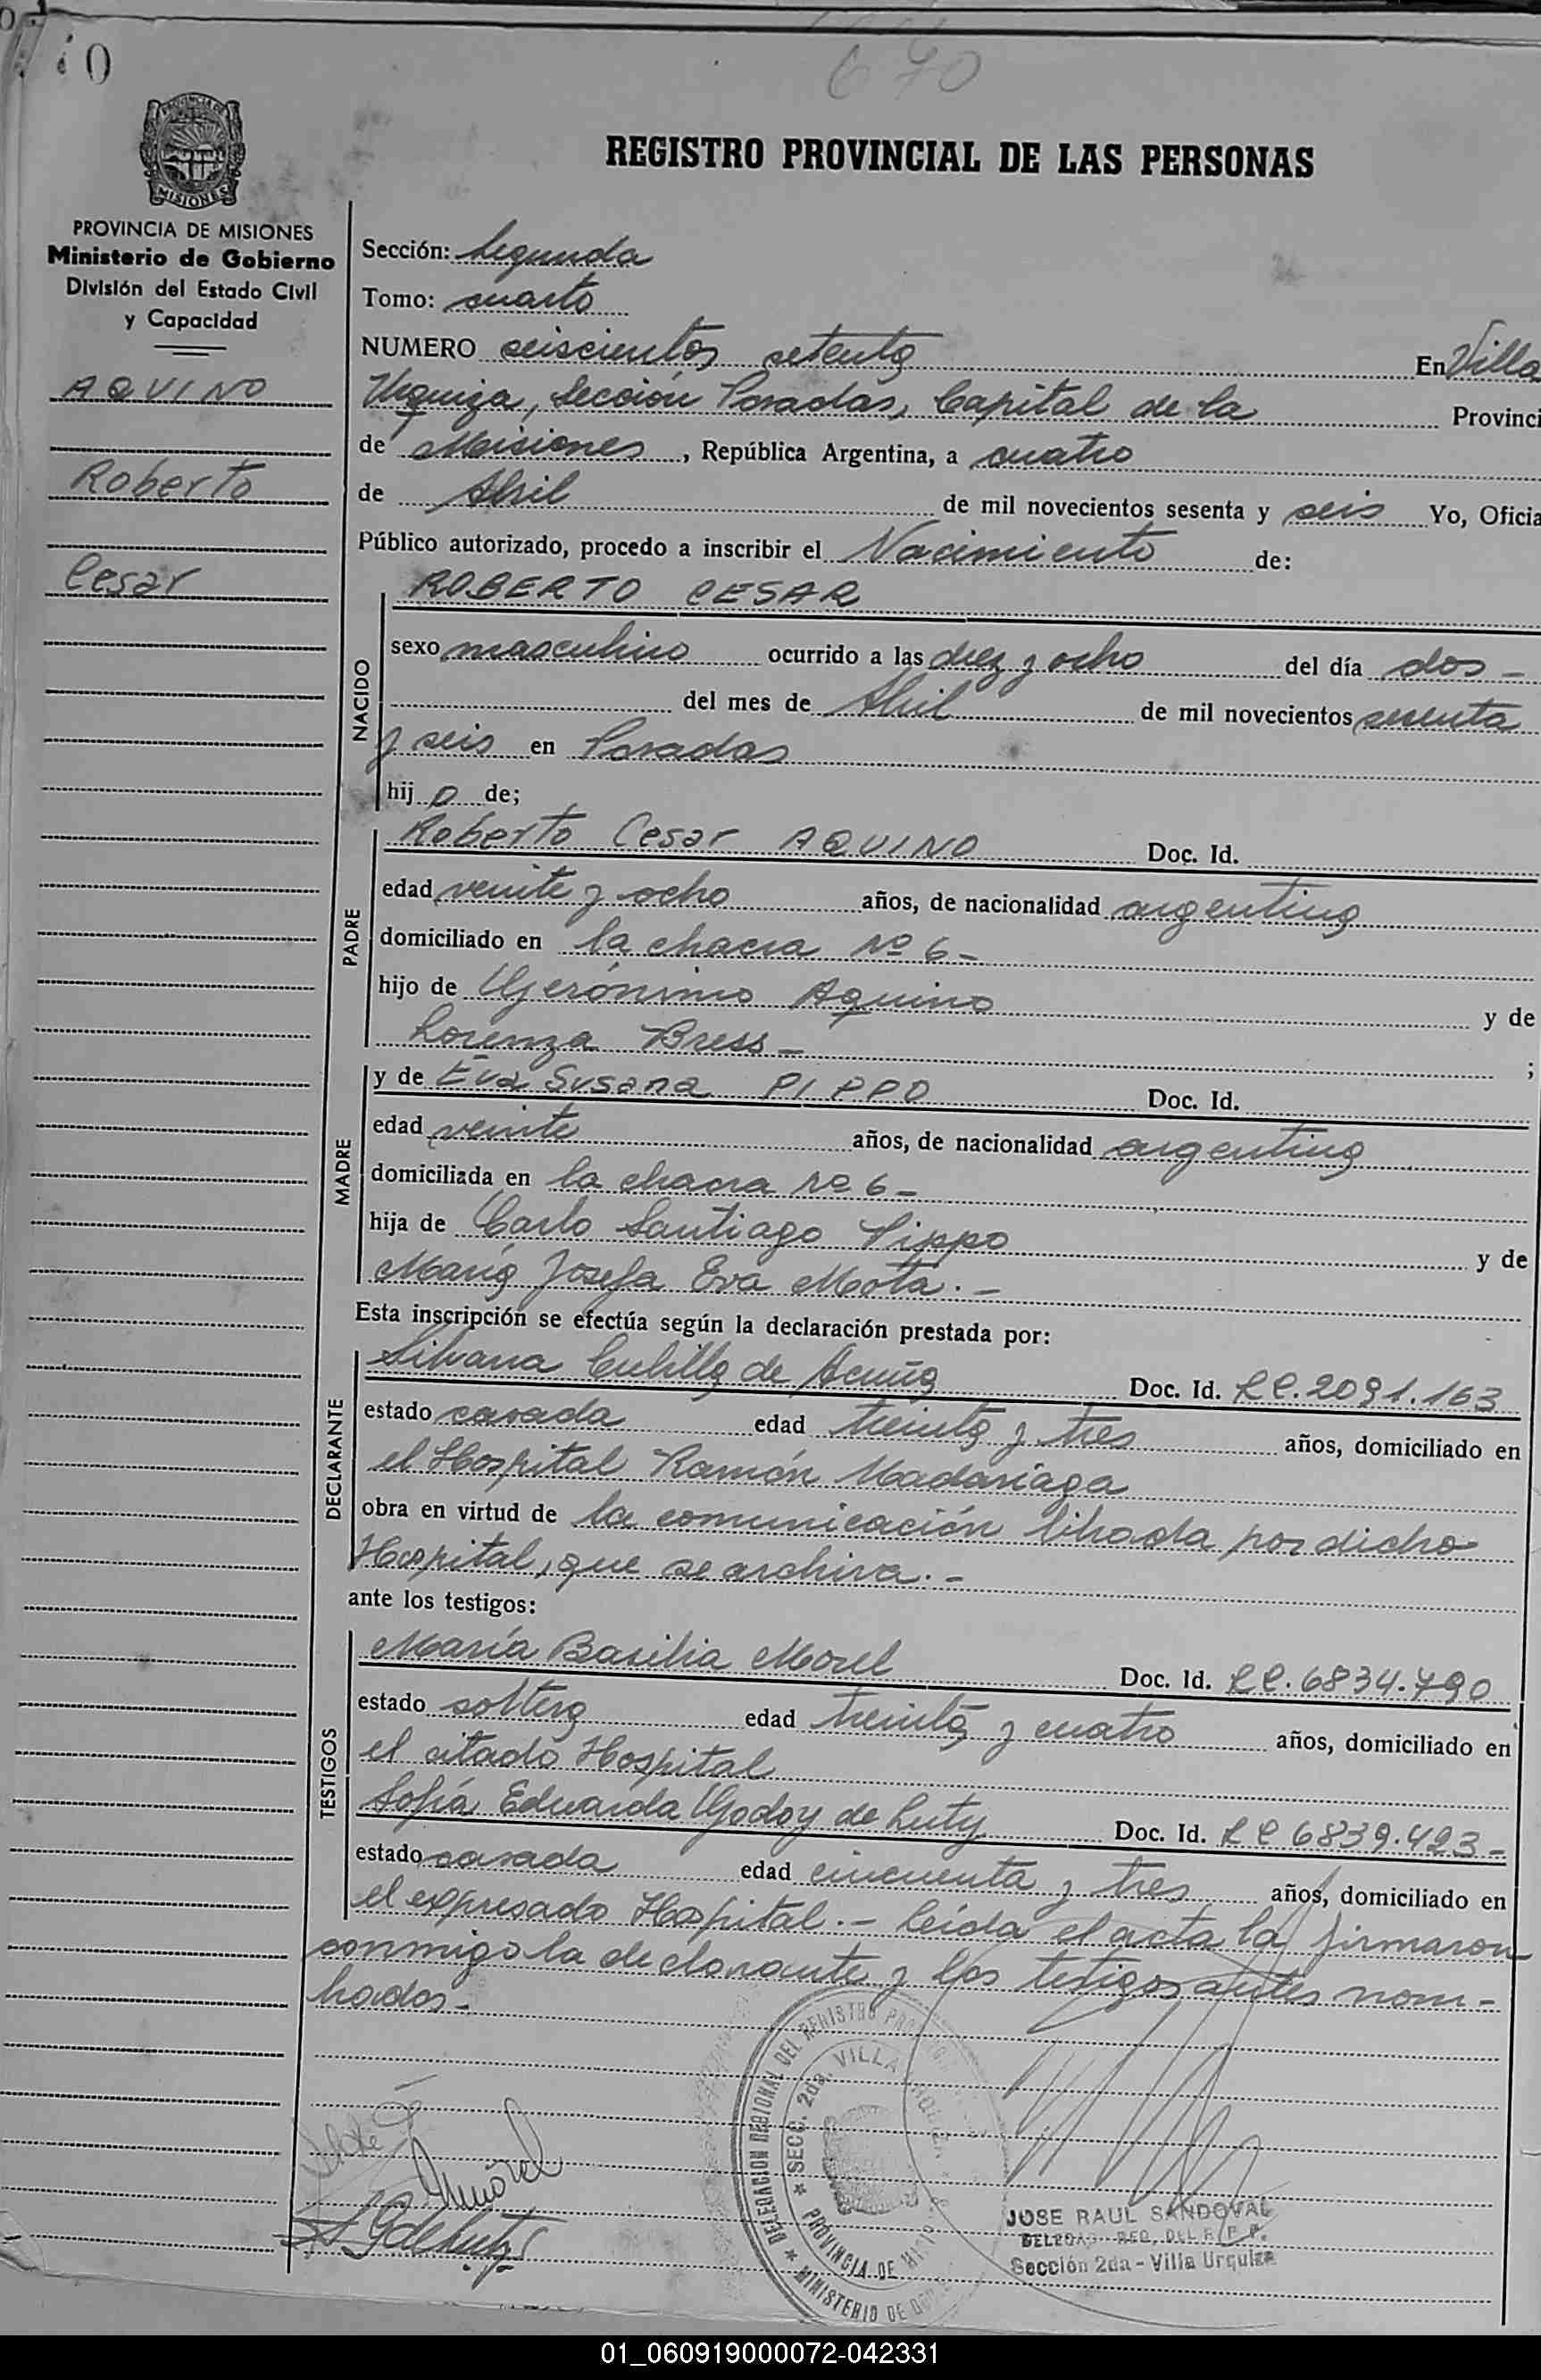 670
REGISTRO PROVINCIAL DE LAS PERSONAS
PROVINCIA DE
MISIONES
PROVINCIA DE MISIONES
Ministerio de Gobierno
División del Estado Civil
y Capacidad
AQUINO
Roberto
Cesar
Sección: Segunda
Tomo: cuarto
NUMERO seiscientos setenta En Villa
Urquiza, Sección Posadas, Capital de la Provinci
de Misiones, República Argentina, a cuatro
de Abril de mil novecientos sesenta y seis Yo, Oficia
Público autorizado, procedo a inscribir el Nacimiento de:
NACIDO
ROBERTO CESAR
sexo masculino ocurrido a las diez y ocho del día dos -
del mes de Abril de mil novecientos sesenta
y seis en Posadas
hijo de;
PADRE
Roberto Cesar AQUINO Doc. Id.
edad veinte y ocho años, de nacionalidad argentina
domiciliado en la chacra Nº 6 -
hijo de Gerónimo Aquino y de
Lorenza Bress - ;
MADRE
y de Eva Susana PIPPO Doc. Id.
edad veinte años, de nacionalidad argentina
domiciliada en la chacra Nº 6 -
hija de Carlo Santiago Pippo y de
María Josefa Eva Mota. -
Esta inscripción se efectúa según la declaración prestada por:
DECLARANTE
Silvana Cubilla de Acuña Doc. Id. LC. 2091.163
estado casada edad treinta y tres años, domiciliado en
el Hospital Ramón Madariaga
obra en virtud de la comunicación librada por dicho
Hospital, que se archiva. -
ante los testigos:
TESTIGOS
María Basilia Morel Doc. Id. LC. 6834.790
estado soltera edad treinta y cuatro años, domiciliado en
el citado Hospital
Sofía Eduarda Godoy de Luty Doc. Id. LC 6839.423 -
estado casada edad cincuenta y tres años, domiciliado en
el expresado Hospital. - Leída el acta la firmaron
conmigo la declarante y los testigos antes nom-
brados -
DELEGACION REGIONAL DEL REGISTRO
SECC. 2da. VILLA
PROVINCIA DE
MINISTERIO DE
JOSE RAUL SANDOVAL
DELEGAD. REG. DEL R. P. P.
Sección 2da - Villa Urquiza
01_060919000072-042331